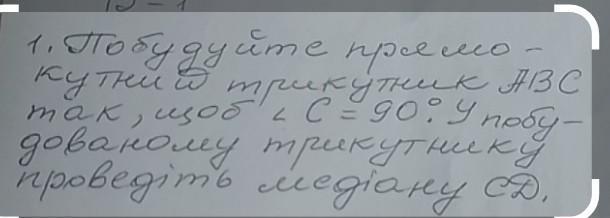 1. Побудуйте прямо-
кутний трикутник ABC
так, щоб ∠ C = 90°. У побу-
дованому трикутнику
проведіть медіану CD.